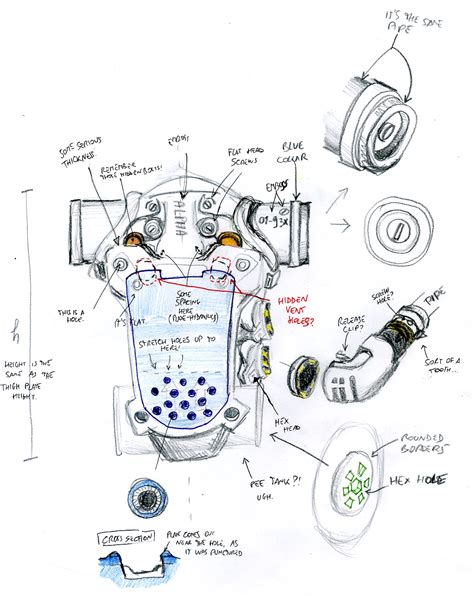 IT'S THE SAME
APE
SOME SERIOUS
THICKNESS
REMEMBER
THOSE HIDDEN BOLTS!
EMBOSS
FLAT HEAD
SCREWS
BLUE
COLLAR
EMBOSS
ALPHA
01-93X
h
HEIGHT IS THE
SAME AS THE
THIGH PLATE
HEIGHT.
THIS IS A
HOLE.
IT'S FLAT.
SOME
SPACING
HERE
STRETCH HOLES UP TO
HERE!
HIDDEN
VENT
HOLES?
SCREW
HOLE?
RELEASE
CLIP?
TAPE
SORT OF A
TOOTH...
HEX
HEAD
PEE TANK?!
UGH.
ROUNDED
BORDERS
HEX HOLE
CROSS SECTION
PLATE COMES OUT
NEAR THE HOLE, AS
IT WAS PUNCTURED